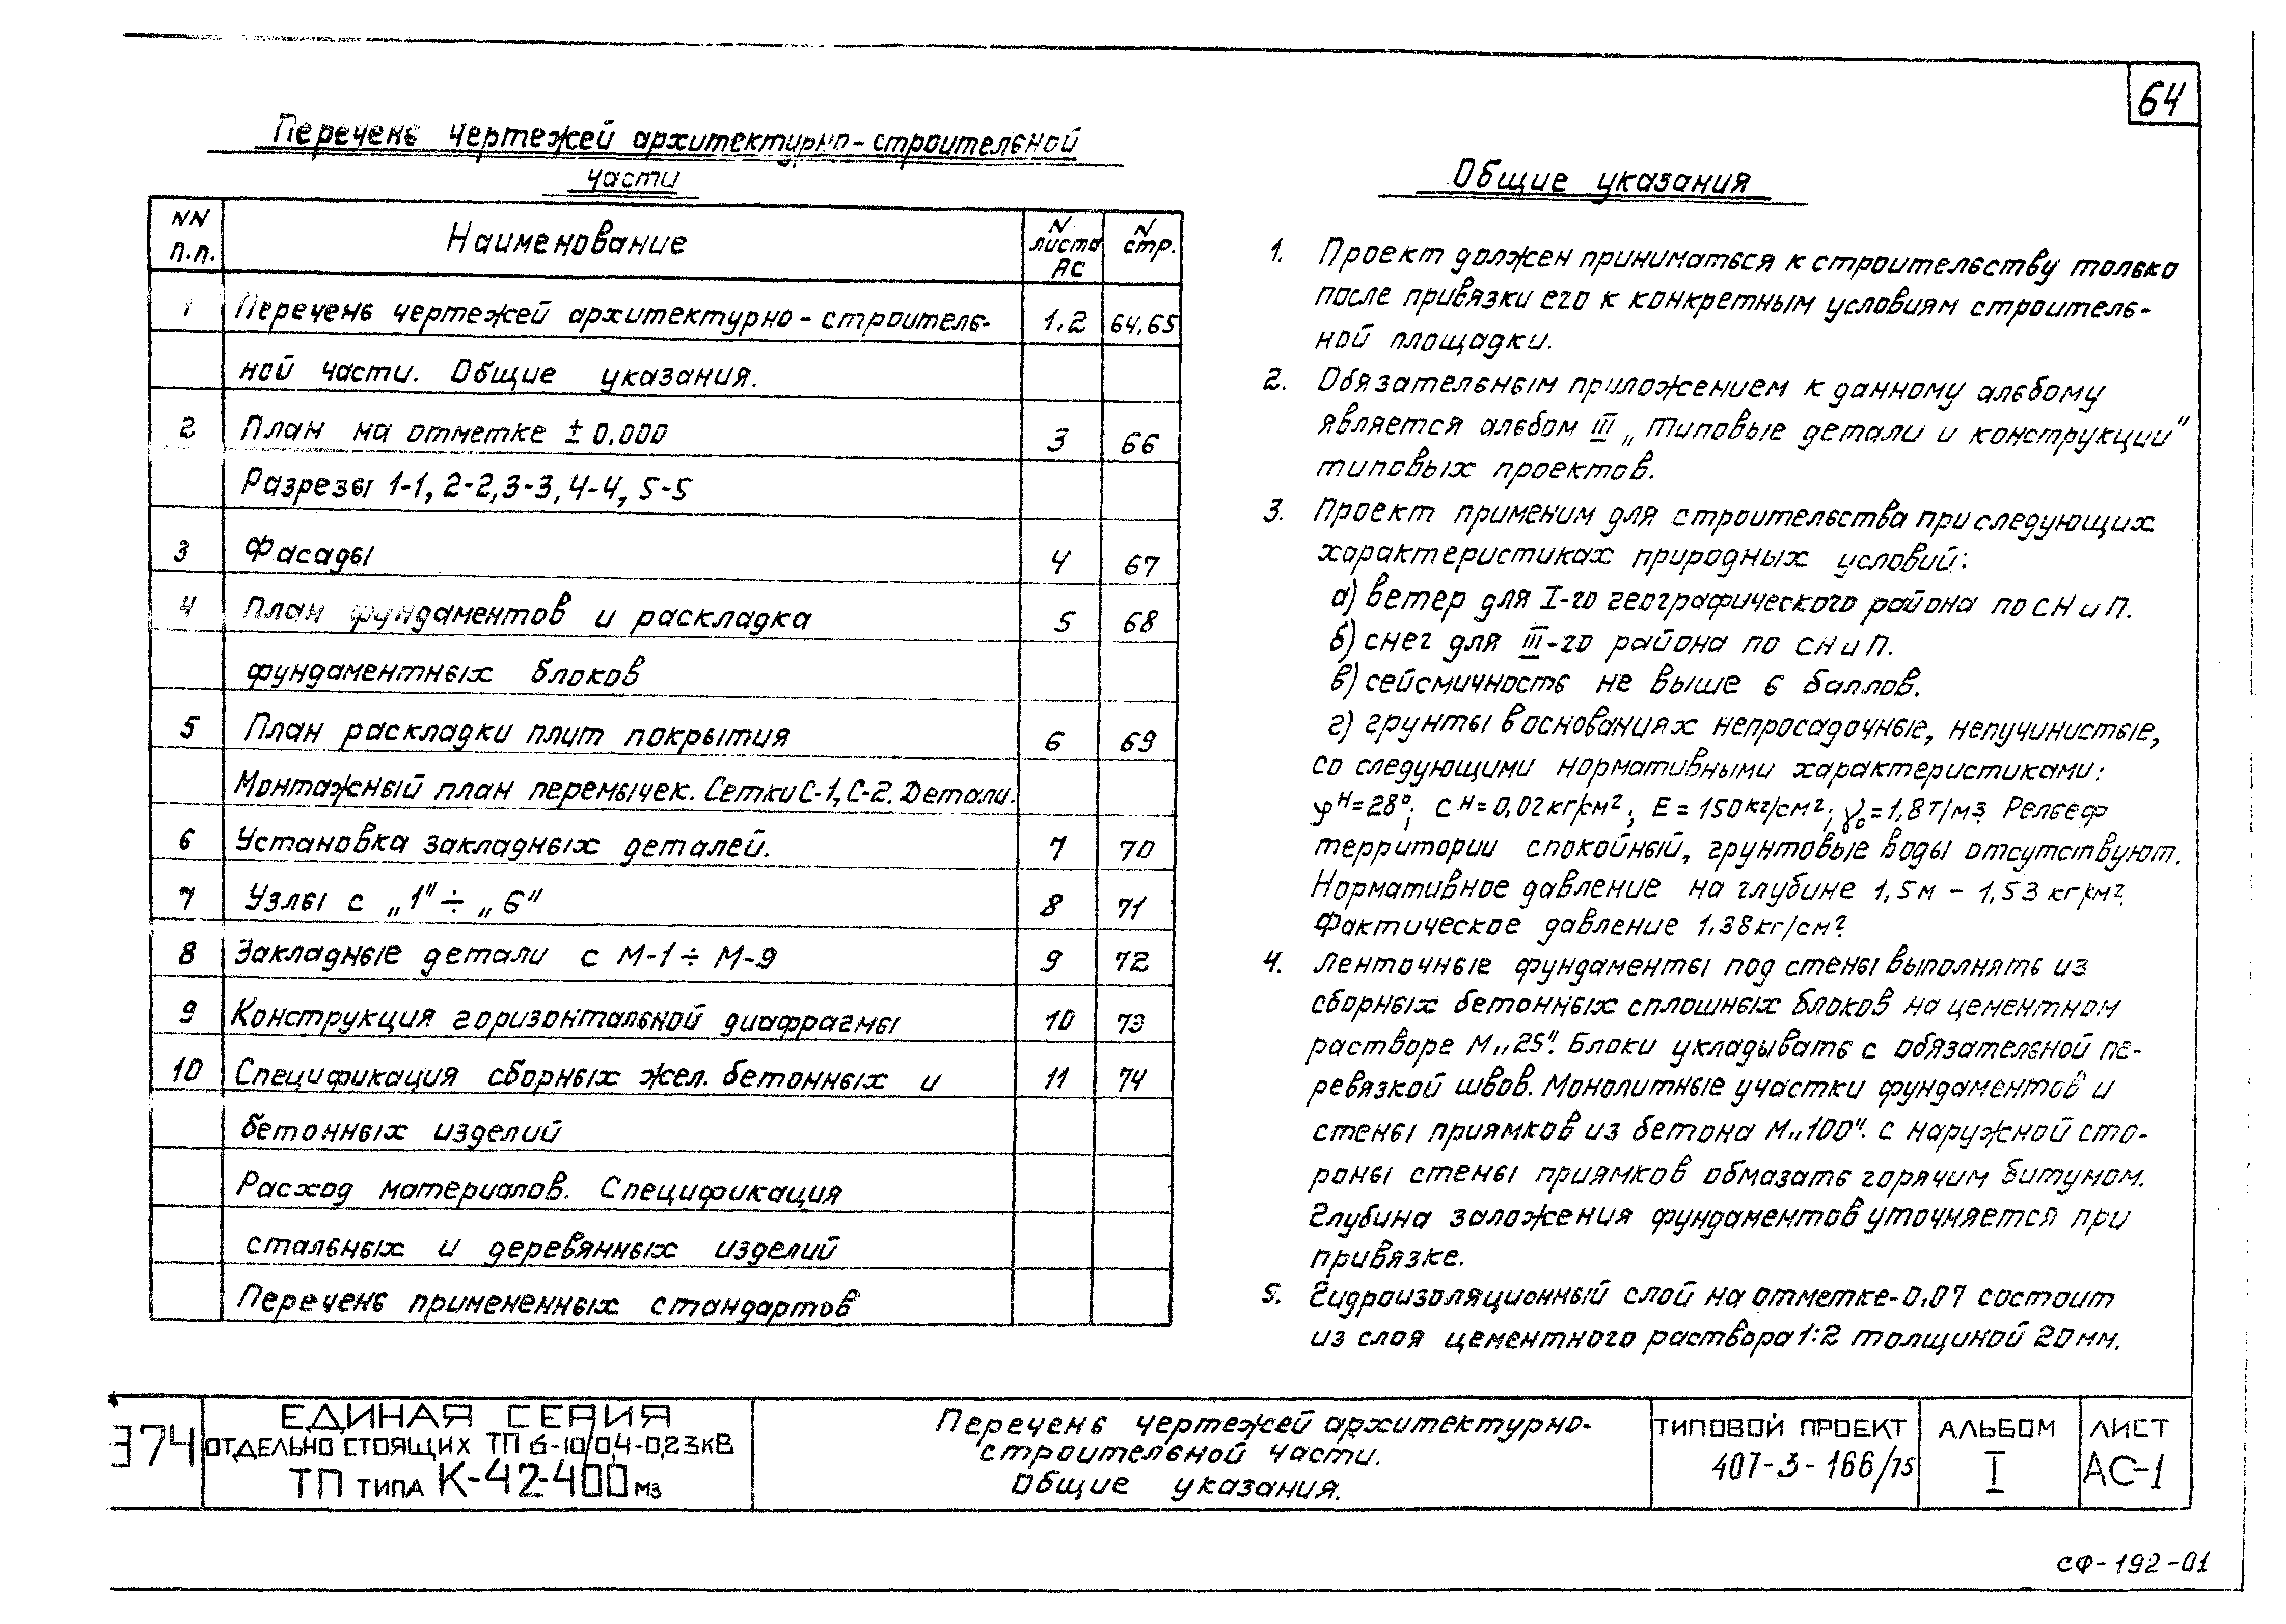 64
Перечень чертежей архитектурно-строительной
части
NN п.п. Наименование N листа АС N стр.
1 Перечень чертежей архитектурно-строитель- 1.2 64,65
ной части. Общие указания.
2 План на отметке ± 0.000 3 66
Разрезы 1-1, 2-2, 3-3, 4-4, 5-5
3 Фасады 4 67
4 План фундаментов и раскладка 5 68
фундаментных блоков
5 План раскладки плит покрытия 6 69
Монтажный план перемычек. Сетки С-1, С-2. Детали.
6 Установка закладных деталей. 7 70
7 Узлы с „1" ÷ „6" 8 71
8 Закладные детали с М-1 ÷ М-9 9 72
9 Конструкция горизонтальной диафрагмы 10 73
10 Спецификация сборных жел. бетонных и 11 74
бетонных изделий
Расход материалов. Спецификация
стальных и деревянных изделий
Перечень примененных стандартов
Общие указания
1. Проект должен приниматься к строительству только
после привязки его к конкретным условиям строитель-
ной площадки.
2. Обязательным приложением к данному альбому
является альбом III „Типовые детали и конструкции"
типовых проектов.
3. Проект применим для строительства при следующих
характеристиках природных условий:
а) ветер для I-го географического района по СНиП.
б) снег для III-го района по СНиП.
в) сейсмичность не выше 6 баллов.
г) грунты в основаниях непросадочные, непучинистые,
со следующими нормативными характеристиками:
φн=28°; Cн=0,02кг/см²; E=150кг/см²; γ₀=1,8т/м3. Рельеф
территории спокойный, грунтовые воды отсутствуют.
Нормативное давление на глубине 1,5м – 1,53 кг/см².
Фактическое давление 1,38кг/см².
4. Ленточные фундаменты под стены выполнять из
сборных бетонных сплошных блоков на цементном
растворе М„25". Блоки укладывать с обязательной пе-
ревязкой швов. Монолитные участки фундаментов и
стены приямков из бетона М„100". С наружной сто-
роны стены приямков обмазать горячим битумом.
Глубина заложения фундаментов уточняется при
привязке.
5. Гидроизоляционный слой на отметке-0.07 состоит
из слоя цементного раствора 1:2 толщиной 20мм.
374
ЕДИНАЯ СЕРИЯ
ОТДЕЛЬНО СТОЯЩИХ ТП 6-10/0,4-0,23КВ
ТП ТИПА К-42-400 МЗ
Перечень чертежей архитектурно-
строительной части.
Общие указания.
ТИПОВОЙ ПРОЕКТ
407-3-166/75
АЛЬБОМ
I
ЛИСТ
АС-1
СФ-192-01